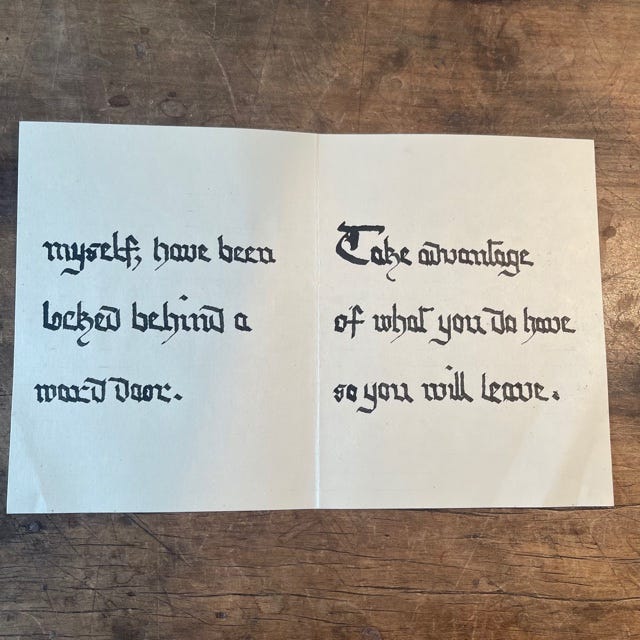 myself, have been
locked behind a
ward door.
Take advantage
of what you do have
so you will leave.